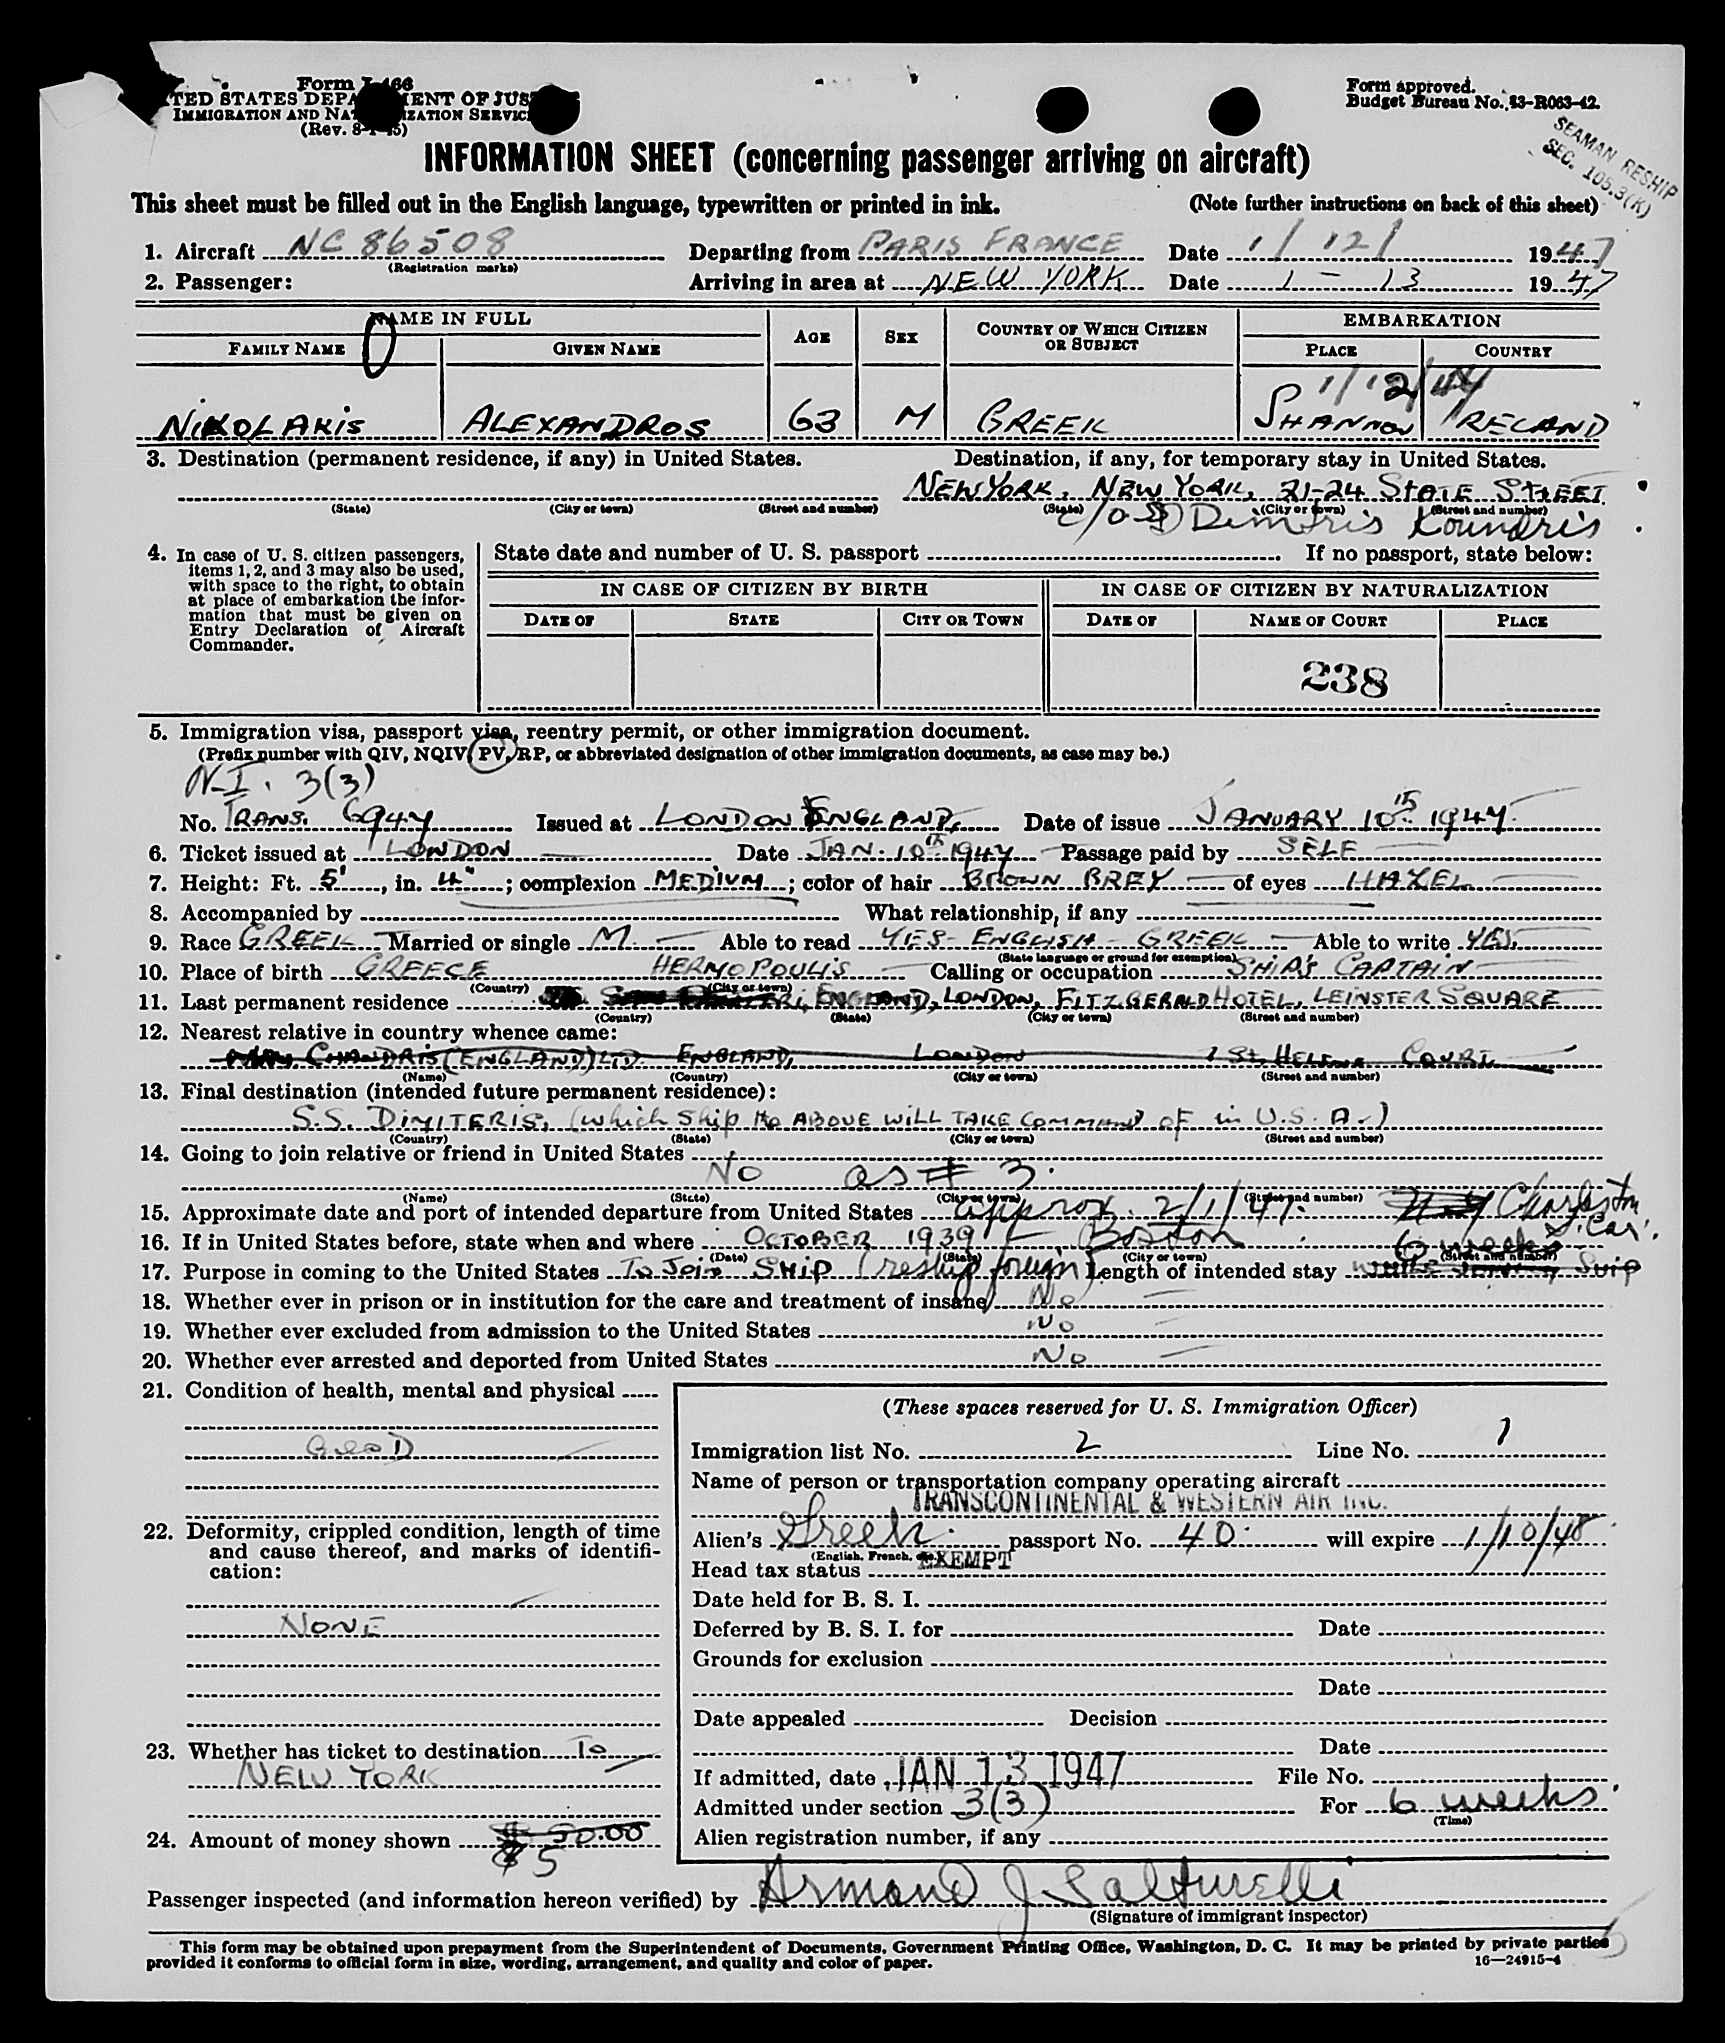 Form I-466
UNITED STATES DEPARTMENT OF JUSTICE
IMMIGRATION AND NATURALIZATION SERVICE
(Rev. 8-1-45)
Form approved.
Budget Bureau No. 43-R063-42.
SEAMAN RESHIP
SEC. 105.3(K)
INFORMATION SHEET (concerning passenger arriving on aircraft)
This sheet must be filled out in the English language, typewritten or printed in ink. (Note further instructions on back of this sheet)
1. Aircraft NC 86508 Departing from PARIS FRANCE Date 1/12/ 1947
(Registration marks)
2. Passenger: Arriving in area at NEW YORK Date 1-13 1947
NAME IN FULL AGE SEX COUNTRY OF WHICH CITIZEN OR SUBJECT EMBARKATION
FAMILY NAME GIVEN NAME PLACE COUNTRY
1/12/47
NIKOLAKIS ALEXANDROS 63 M GREEK SHANNON IRELAND
3. Destination (permanent residence, if any) in United States. Destination, if any, for temporary stay in United States.
NEW YORK, NEW YORK, 21-24 STATE STREET
(State) (City or town) (Street and number) (State) (City or town) (Street and number)
c/o Dimitris Koundris
4. In case of U. S. citizen passengers, items 1, 2, and 3 may also be used, with space to the right, to obtain at place of embarkation the information that must be given on Entry Declaration of Aircraft Commander.
State date and number of U. S. passport If no passport, state below:
IN CASE OF CITIZEN BY BIRTH IN CASE OF CITIZEN BY NATURALIZATION
DATE OF STATE CITY OR TOWN DATE OF NAME OF COURT PLACE
238
5. Immigration visa, passport visa, reentry permit, or other immigration document.
(Prefix number with QIV, NQIV, PV, RP, or abbreviated designation of other immigration documents, as case may be.)
N.I. 3(3)
No. TRANS. 6947 Issued at LONDON ENGLAND, Date of issue JANUARY 10th 1947
6. Ticket issued at LONDON Date JAN. 10th 1947 Passage paid by SELF
7. Height: Ft. 5', in. 4"; complexion MEDIUM; color of hair BROWN GREY of eyes HAZEL
8. Accompanied by What relationship, if any
9. Race GREEK Married or single M. Able to read YES - ENGLISH - GREEK Able to write YES.
(State language or ground for exemption)
10. Place of birth GREECE HERMOPOULIS Calling or occupation SHIP'S CAPTAIN
(Country) (City or town)
11. Last permanent residence ENGLAND, LONDON, FITZGERALD HOTEL, LEINSTER SQUARE
(Country) (State) (City or town) (Street and number)
12. Nearest relative in country whence came:
CHANDRIS (ENGLAND) LTD. ENGLAND, LONDON 1 St. HELENS COURT
(Name) (Country) (City or town) (Street and number)
13. Final destination (intended future permanent residence):
S.S. DIMITERIS, (which ship the ABOVE WILL TAKE COMMAND OF in U.S.A.)
(Country) (State) (City or town) (Street and number)
14. Going to join relative or friend in United States
No as # 3.
(Name) (State) (City or town) (Street and number)
15. Approximate date and port of intended departure from United States approx. 2/1/47. Charleston S. Car.
16. If in United States before, state when and where OCTOBER 1939 - Boston
(Date) (State) (City or town) (Street and number)
17. Purpose in coming to the United States To Join SHIP (reship foreign) Length of intended stay 6 weeks SHIP
18. Whether ever in prison or in institution for the care and treatment of insane No
19. Whether ever excluded from admission to the United States No
20. Whether ever arrested and deported from United States No
21. Condition of health, mental and physical
GOOD
22. Deformity, crippled condition, length of time and cause thereof, and marks of identification:
NONE
23. Whether has ticket to destination To
NEW YORK
24. Amount of money shown $ 50.00
$ 5
(These spaces reserved for U. S. Immigration Officer)
Immigration list No. 2 Line No. 1
Name of person or transportation company operating aircraft
TRANSCONTINENTAL & WESTERN AIR INC.
Alien's Greek passport No. 40 will expire 1/10/48
(English, French, etc.)
Head tax status EXEMPT
Date held for B. S. I.
Deferred by B. S. I. for Date
Grounds for exclusion
Date
Date appealed Decision
Date
If admitted, date JAN 13 1947 File No.
Admitted under section 3(3) For 6 weeks
(Time)
Alien registration number, if any
Passenger inspected (and information hereon verified) by Armand J. Salturelli
(Signature of immigrant inspector)
This form may be obtained upon prepayment from the Superintendent of Documents, Government Printing Office, Washington, D. C. It may be printed by private parties
provided it conforms to official form in size, wording, arrangement, and quality and color of paper. 16—24915-4